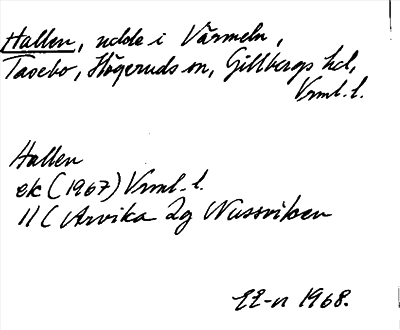 Hallen, udde i Värmeln,
Tasebo, Högeruds sn, Gillbergs hd,
Vrml. l.
Hallen
ek (1967) Vrml. l.
11C Arvika 2g Nussviken
1968.